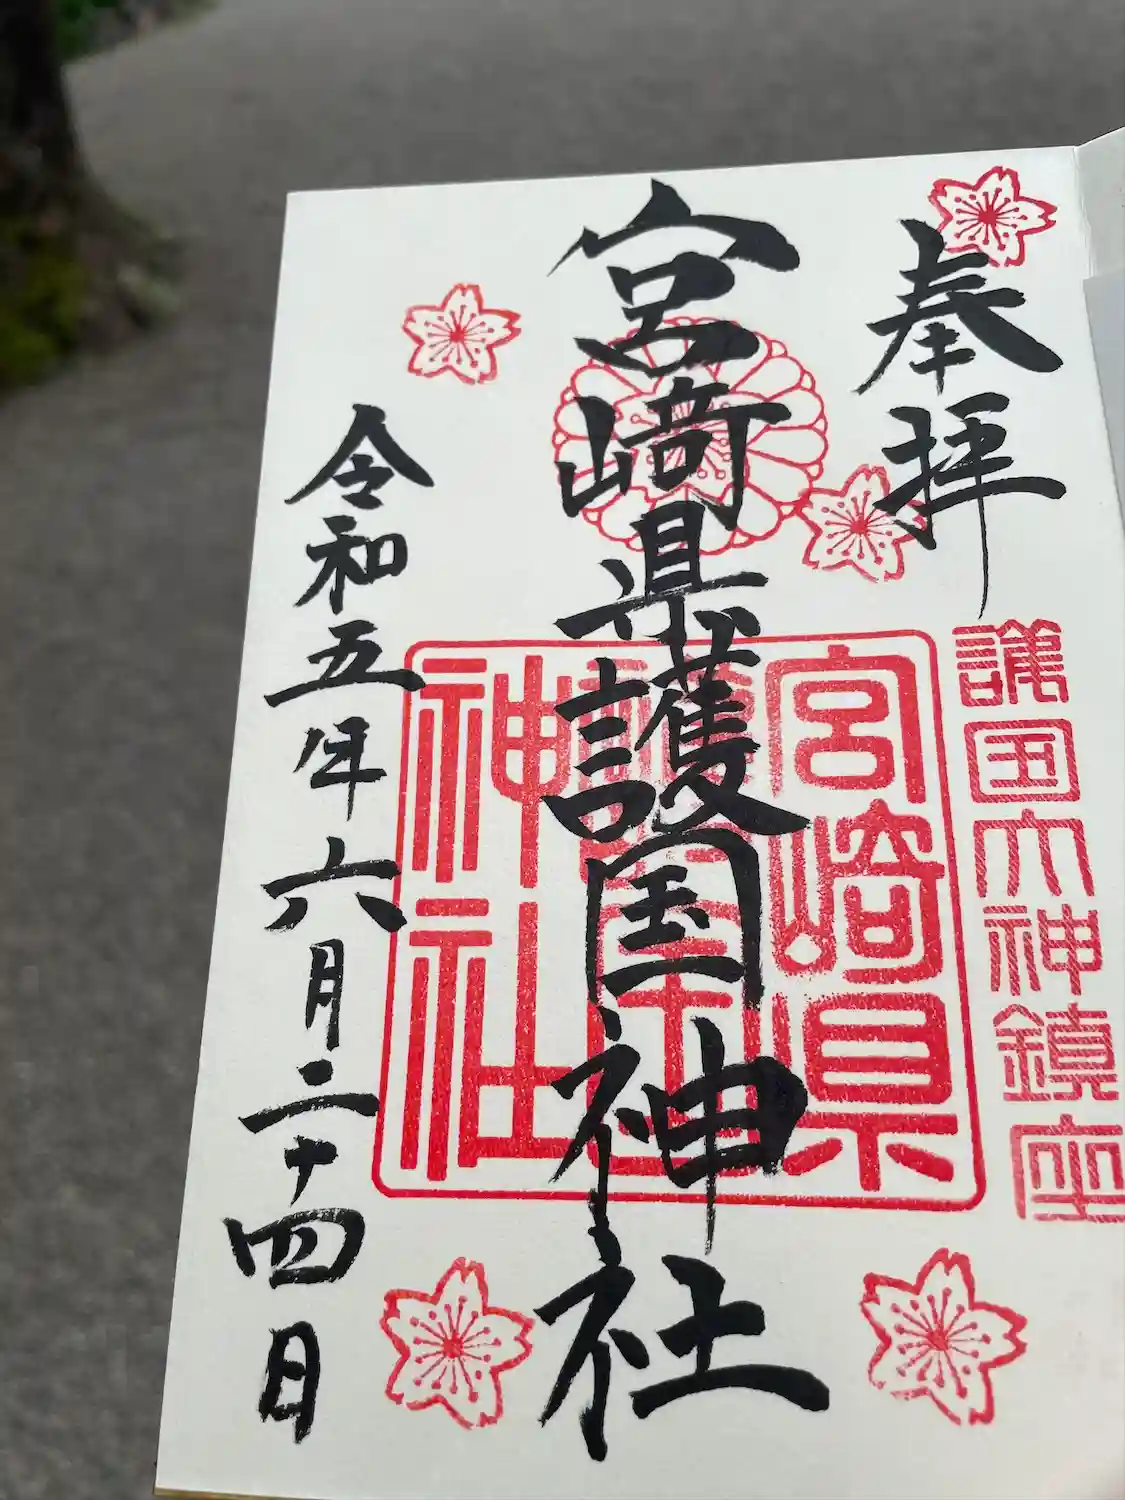 奉拝
護国大神鎮座
宮崎県護国神社
宮崎県
護国
神社
令和五年六月二十四日